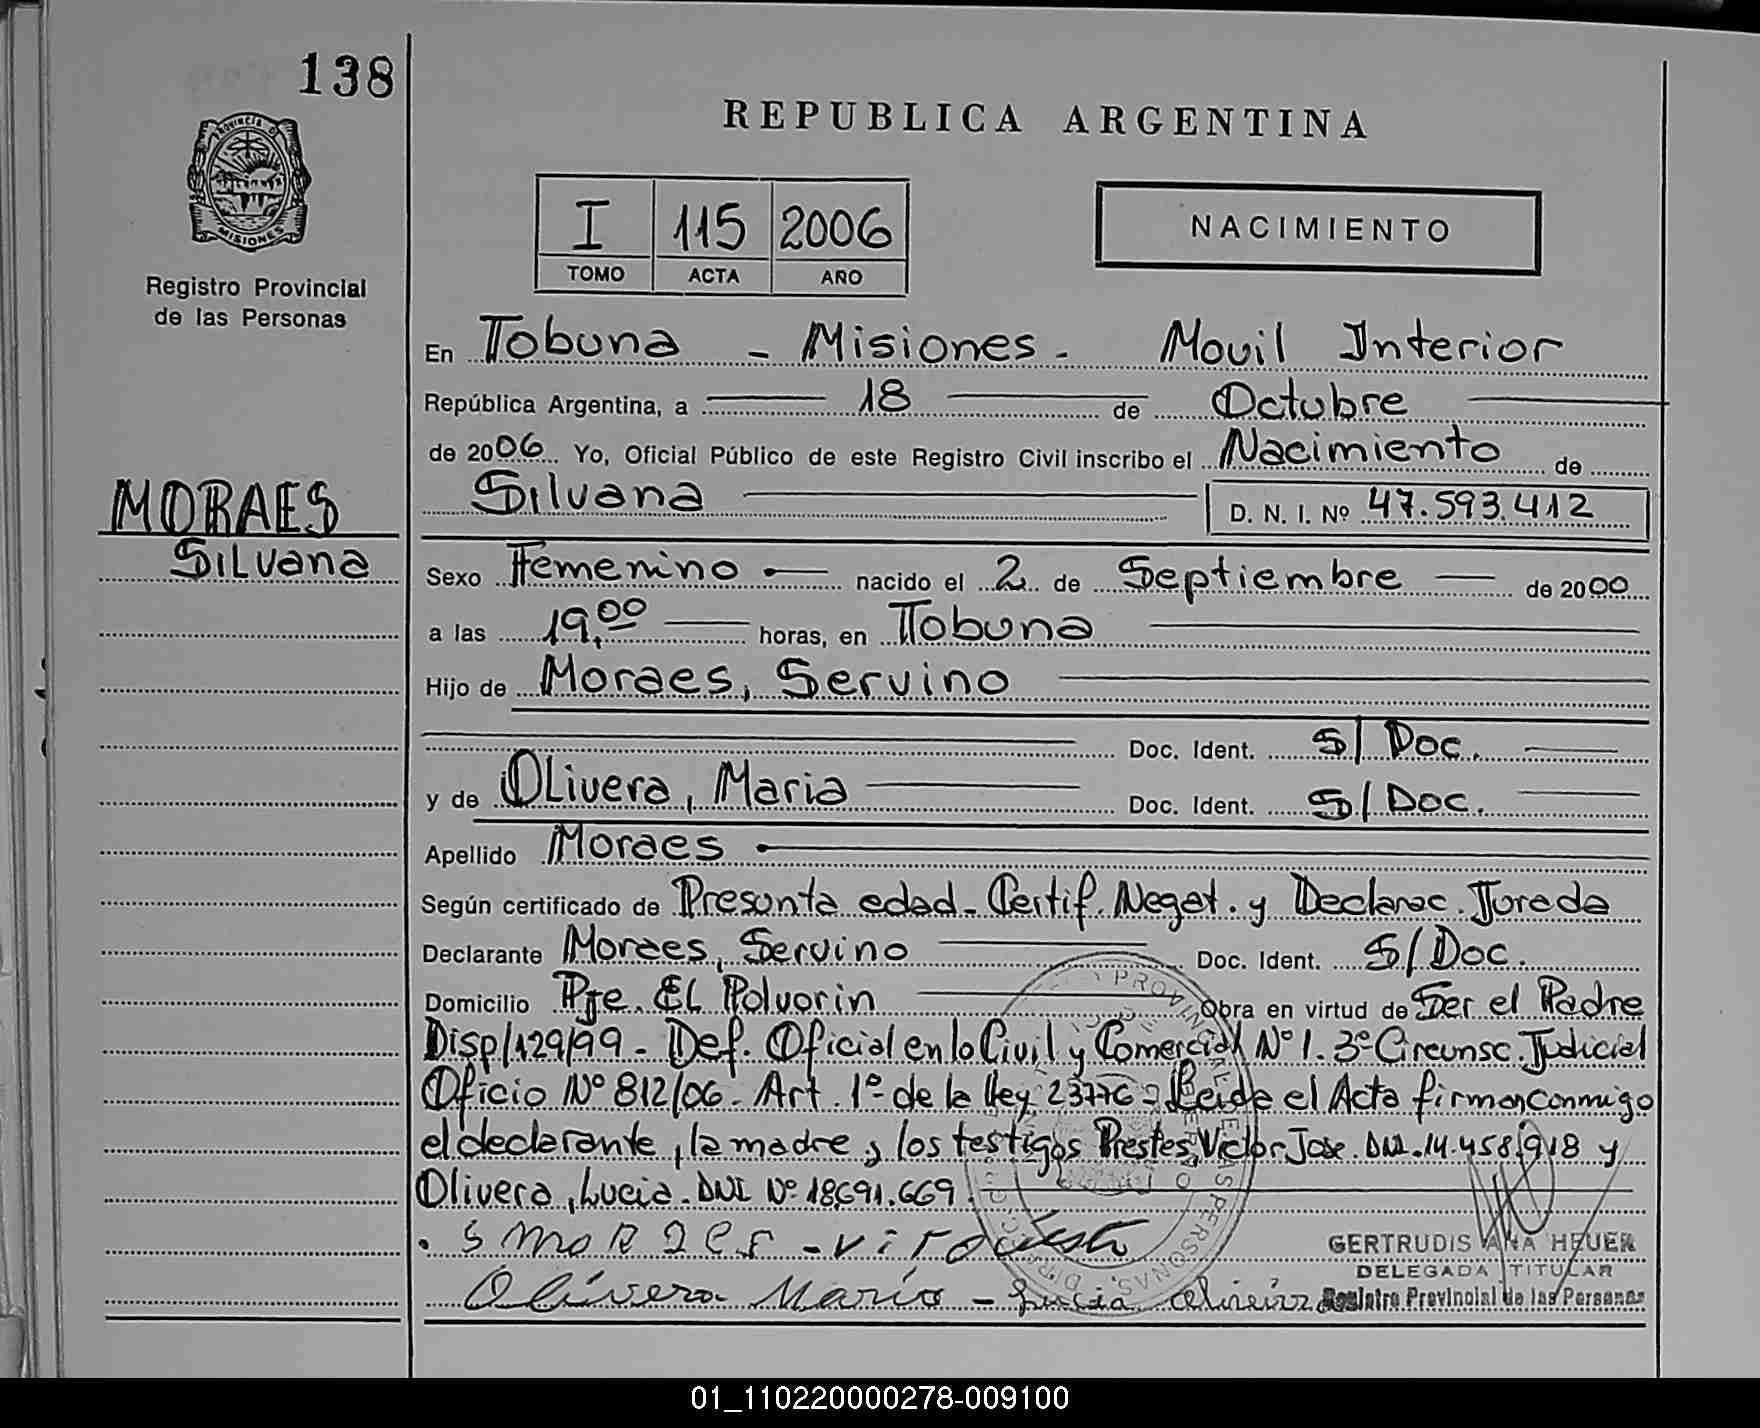 138
PROVINCIA D
MISIONES
Registro Provincial
de las Personas
REPUBLICA ARGENTINA
I 115 2006
TOMO ACTA AÑO
NACIMIENTO
En Tobuna - Misiones - Movil Interior
República Argentina, a 18 de Octubre
de 2006 Yo, Oficial Público de este Registro Civil inscribo el Nacimiento de
Silvana D. N. I. Nº 47.593.412
MORAES
SILVana
Sexo Femenino nacido el 2 de Septiembre de 2000
a las 19,00 horas, en Tobuna
Hijo de Moraes, Servino
Doc. Ident. S/Doc.
y de OLivera, Maria Doc. Ident. S/Doc.
Apellido Moraes
Según certificado de Presunta edad - Certif. Negat. y Declarac. Jurada
Declarante Moraes, Servino Doc. Ident. S/Doc.
Domicilio Pje. EL Polvorin Obra en virtud de Ser el Padre
Disp/129/99 - Def. Oficial en lo Civil y Comercial Nº 1. 3º Circunsc. Judicial
Oficio Nº 812/06 - Art. 1º de la Ley 23776 - Leida el Acta firman conmigo
el declarante, la madre y los testigos Prestes, Victor Jose. DNI. 14.458.918 y
Olivera, Lucia. DNI Nº 18.691.669.
Olivera Maria - Lucia
GERTRUDIS ANA HEUER
DELEGADA TITULAR
Registro Provincial de las Personas
01_110220000278-009100